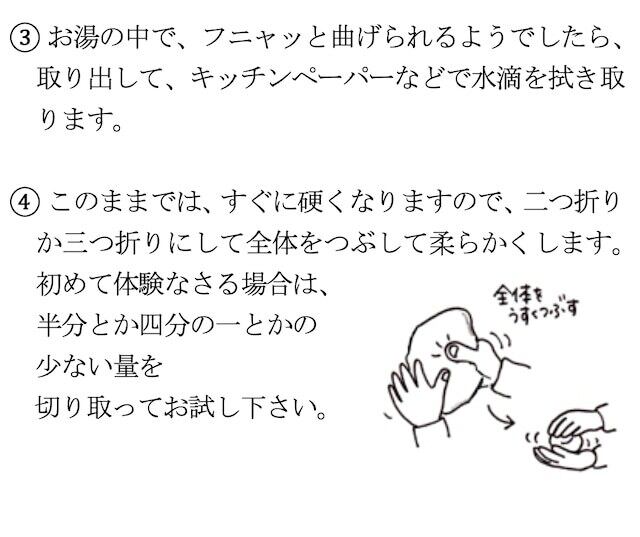 ③ お湯の中で、フニャッと曲げられるようでしたら、
取り出して、キッチンペーパーなどで水滴を拭き取
ります。
④ このままでは、すぐに硬くなりますので、二つ折り
か三つ折りにして全体をつぶして柔らかくします。
初めて体験なさる場合は、
半分とか四分の一とかの
少ない量を
切り取ってお試し下さい。
全体を
うすくつぶす